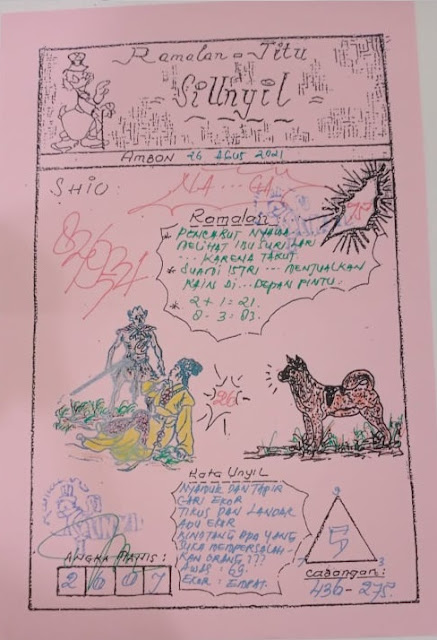 Ramalan = Titu
Si Unyil
AMBON 26 AGUS 2021
SHIO:
NA...GA
Ramalan
* PENCABUT NYAWA
MELIHAT IBU SURI LARI
... KARENA TAKUT
* SUAMI ISTRI ... MENJUALKAN
KAIN DI... DEPAN PINTU.
* 2 + 1 = 21.
0 - 3 = 03.
26
Kata Unyil
NYAMUK DAN TAPIR
CARI EKOR
TIKUS DAN LANDAK
ADU EKOR
BINATANG APA YANG
SUKA MEMPERSALAH-
KAN ORANG ???
AWAS : 69.
EKOR : EMPAT.
ANGKA MATTIS:
2 6 0 7
9
5
7 3
Cadangan:
436 - 275.